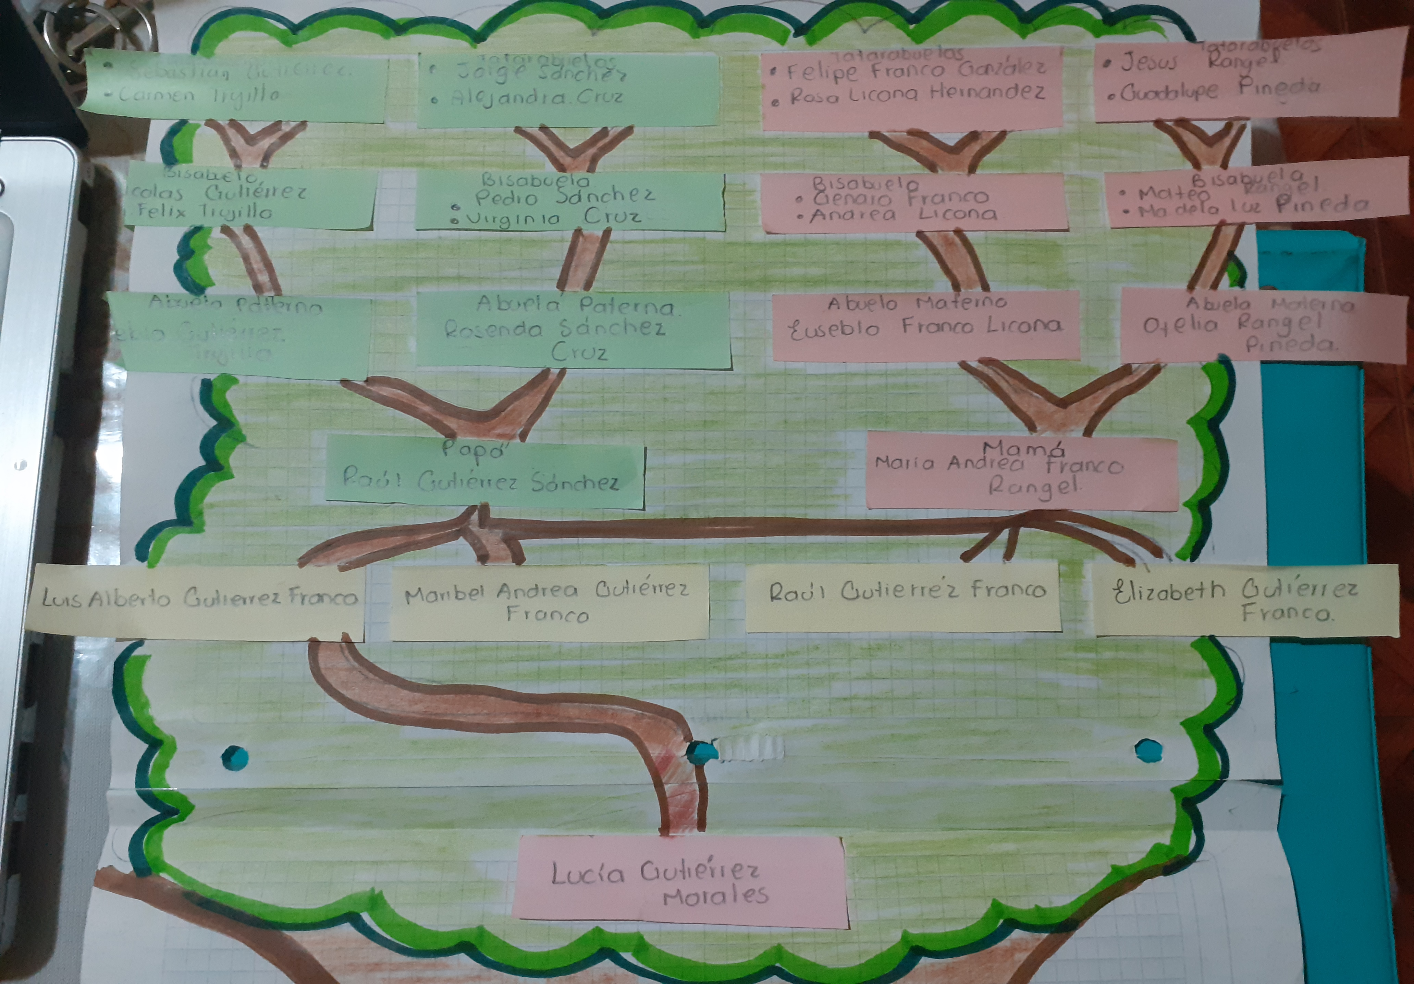 Tatarabuelos
• Sebastián Gutiérrez.
• Carmen Trujillo
Tatarabuelos
• Jorge Sánchez
• Alejandra Cruz
Tatarabuelos
• Felipe Franco González
• Rosa Licona Hernandez
Tatarabuelos
• Jesus Rangel
• Guadalupe Pineda
Bisabuelo
colas Gutiérrez
Felix Trujillo
Bisabuela
• Pedro Sánchez
• Virginia Cruz
Bisabuelo
• Genaro Franco
• Andrea Licona
Bisabuela
• Mateo Rangel
• Ma. de la luz Pineda
Paterna
Gutiérrez
Abuela Paterna.
Rosenda Sánchez
Cruz
Abuelo Materno
Eusebio Franco Licona
Abuela Materna
Ofelia Rangel
Pineda.
Papá
Raúl Gutiérrez Sánchez
Mamá
Maria Andrea Franco
Rangel.
Luis Alberto Gutierrez Franco
Maribel Andrea Gutiérrez
Franco
Raúl Gutierréz Franco
Elizabeth Gutiérrez
Franco.
Lucía Gutiérrez
Morales